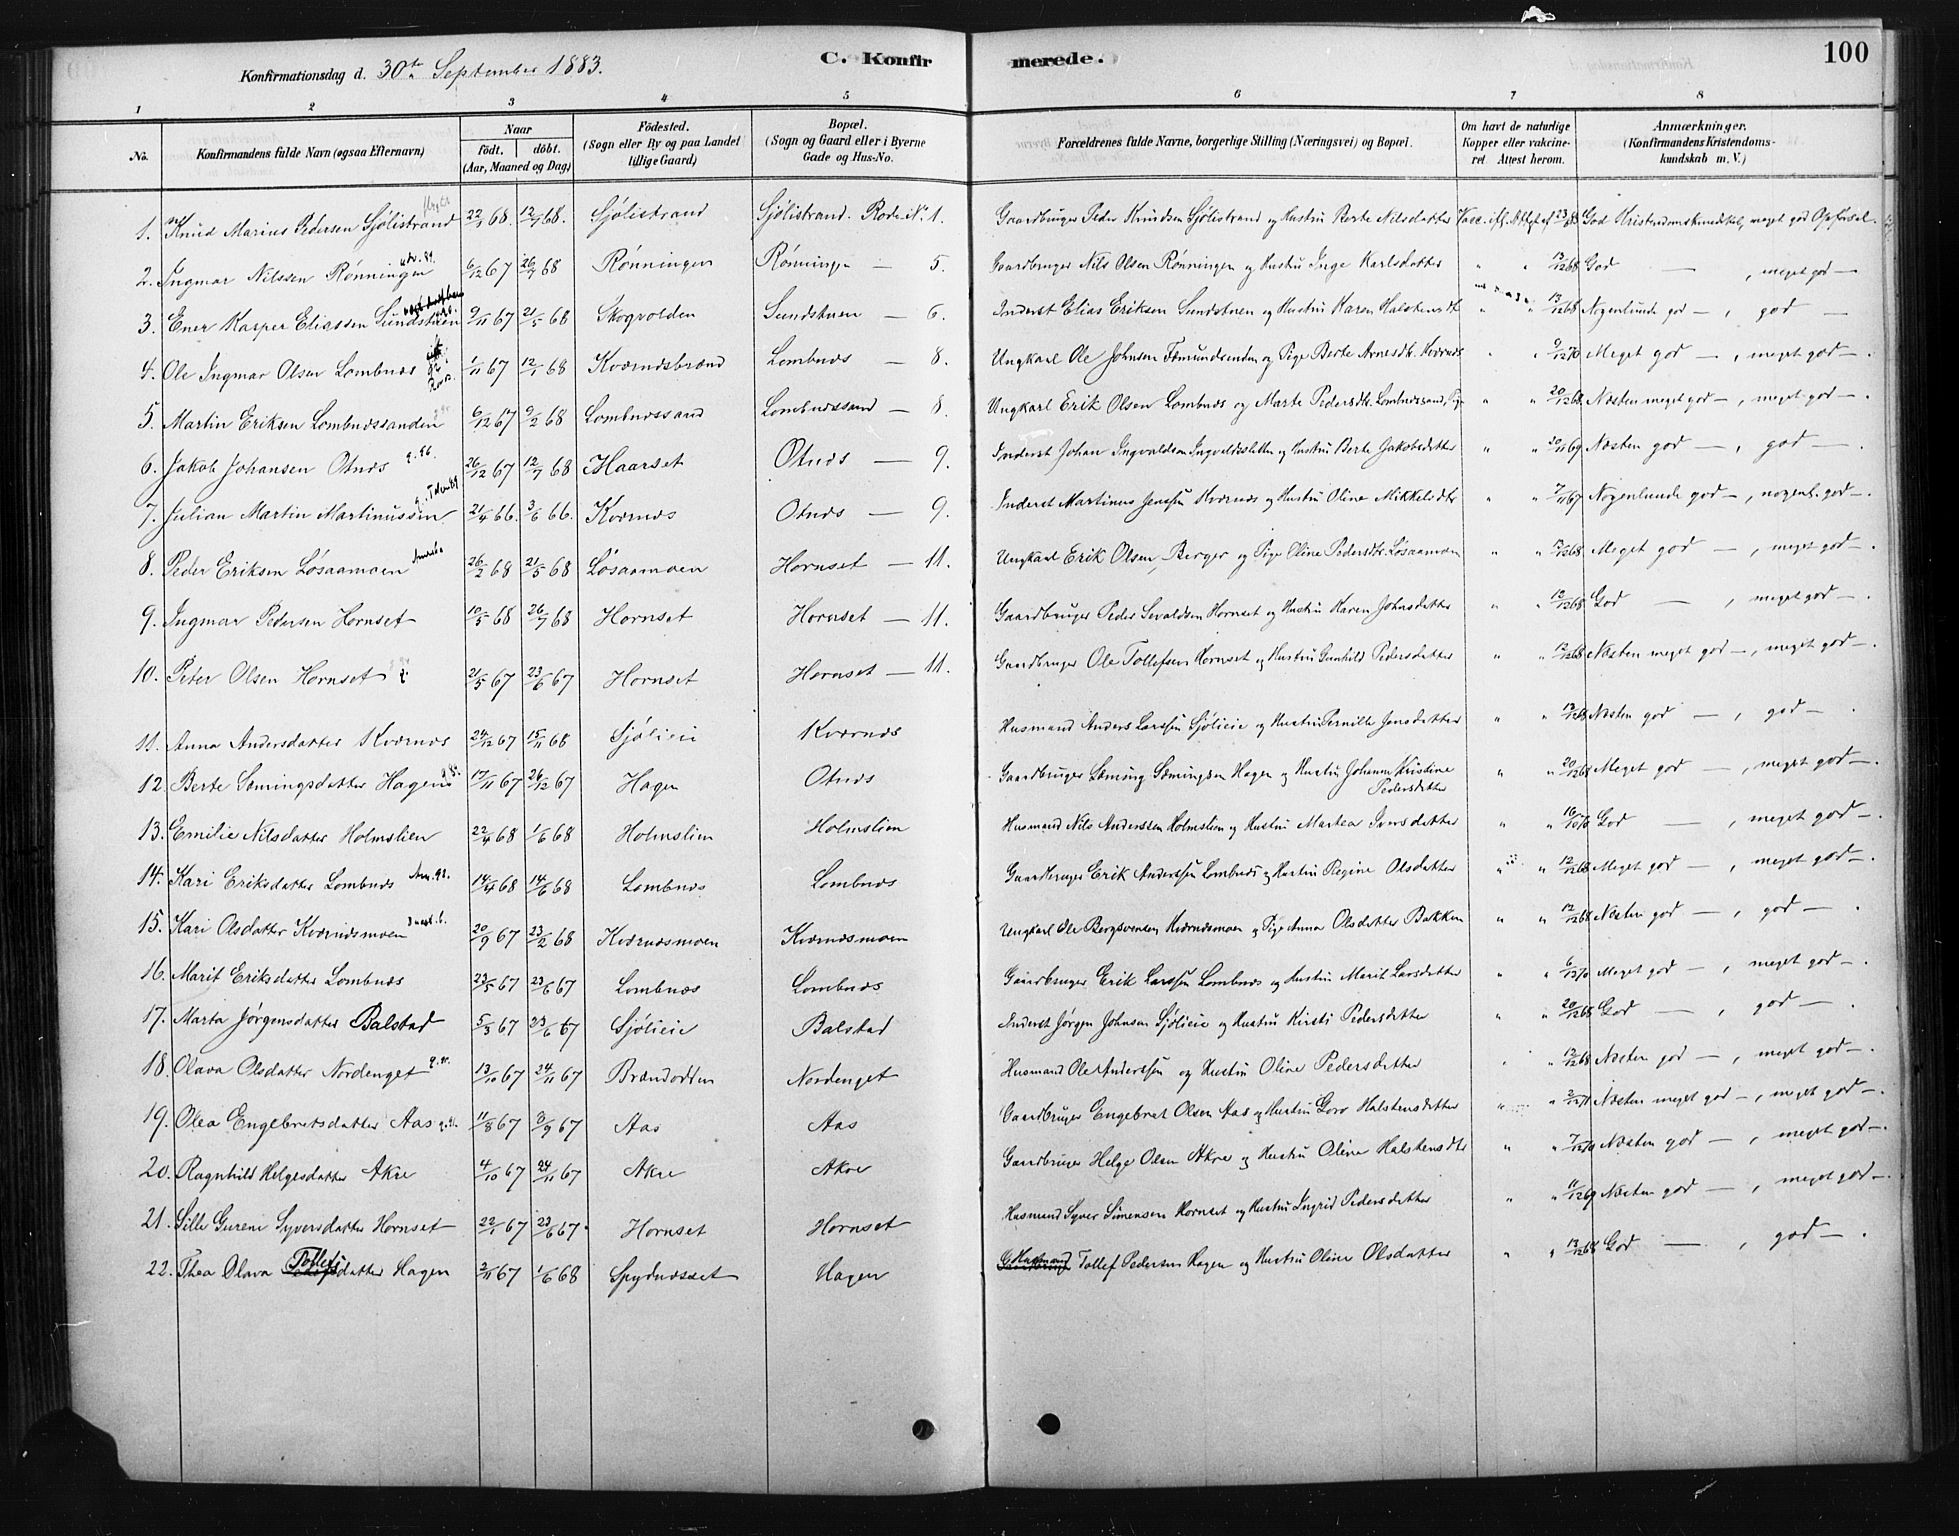 100
Konfirmationsdag d. 30te September 1883. C. Konfirmerede.
1 2 3 4 5 6 7 8
No. Konfirmandens fulde Navn (ogsaa Efternavn) Naar født, døbt. (Aar, Maaned og Dag) Fødested. (Sogn eller By og paa Landet tillige Gaard) Bopæl. (Sogn og Gaard eller i Byerne Gade og Hus-No. Forældrenes fulde Navne, borgerlige Stilling (Næringsvei) og Bopæl. Om havt de naturlige Kopper eller vakcineret Attest herom. Anmærkninger. (Konfirmandens Kristendomskundskab m. V.)
1. Knud Marius Pedersen Sjølistrand 22/1 68. 12/4 68. Sjølistrand Sjølistrand. Rode No. 1. Gaardbruger Peder Knudsen Sjølistrand og Hustru Berte Nilsdatter God Kristendomskundskab, meget god Opførsel.
2. Ingmar Nilssen Rønningen 6/12 67 26/7 68 Rønningen Rønningen — 5. Gaardbruger Nils Olsen Rønningen og Hustru Inge Karlsdatter " " 13/12 68 God — , meget god —
3. Ener Kasper Eliassen Sundstuen 9/11 67 21/5 68 Skogvolden Sundstuen — 6. Inderst Elias Eriksen Sundstuen og Hustru Karen Halstensdt " " 13/12 68 Nogenlunde god — , god —
4. Ole Ingmar Olsen Lombnæs 1/11 67 12/1 68 Kværnæsbrænd Lombnæs — 8. Ungkarl Ole Johnsen Femundsenden og Pige Berte Arnesdtr. Kværnæs " " 9/12 70 Meget god — , meget god —.
5. Martin Eriksen Lombnæssanden 6/12 67 9/2 68 Lombnæssand Lombnæssand — 8. Ungkarl Erik Olsen Lombnæs og Marte Pedersdtr. Lombnæssand, Pige " " 20/12 68 Næsten meget god — , meget god —.
6. Jakob Johansen Otnæs 26/12 67 12/7 68 Haarset Otnæs — 9. Inderst Johan Ingvaldsen Ingvaldssletten og Hustru Berte Jakobsdatter " " 20/11 69 Næsten god — , god —.
7. Julian Martin Martinussen 21/4 66. 3/6 66. Kværnæs Otnæs — 9. Inderst Martinus Jenssen Kværnæs og Hustru Oline Mikkelsdtr " " 7/11 67 Nogenlunde god — , nogenl. god —.
8. Peder Eriksen Løsaamoen 26/2 68 21/5 68 Løsaamoen Hornset — 11. Ungkarl Erik Olsen Berger og Pige Oline Pedersdtr. Løsaamoen " " 12/12 68 Meget god — , meget god —.
9. Ingmar Pedersen Hornset 10/5 68 26/7 68 Hornset Hornset — 11. Gaardbruger Peder Sevaldsen Hornset og Hustru Karen Johnsdatter " " 12/12 68 God — , meget god —.
10. Peter Olsen Hornset 21/5 67 23/6 67 Hornset Hornset — 11. Gaardbruger Ole Tollefsen Hornset og Hustru Gunhild Pedersdatter " " 12/12 68 Næsten meget god — , meget god —.
11. Anna Andersdatter Kværnæs 24/12 67 15/11 68 Sjølieie Kværnæs Husmand Anders Larssen Sjølieie og Hustru Pernille Jonsdatter " " 13/12 68 Næsten god — , god — .
12. Berte Semingsdatter Hagen 17/11 67 26/12 67 Hagen Otnæs Gaardbruger Seming Semingsen Hagen og Hustru Johanne Kristine Pedersdatter " " 20/12 68 Meget god — , meget god —.
13. Emilie Nilsdatter Holmslien 22/4 68 1/6 68 Holmslien Holmslien Husmand Nils Anderssen Holmslien og Hustru Martea Iversdatter " " 16/10 70 God — , meget god —.
14. Kari Eriksdatter Lombnæs 14/4 68 14/6 68 Lombnæs Lombnæs Gaardbruger Erik Anderssen Lombnæs og Hustru Regine Olsdatter " " 12/12 68 Meget god — , meget god —.
15. Kari Olsdatter Kværnæsmoen 20/9 67 23/2 68 Kværnæsmoen Kværnæsmoen Ungkarl Ole Bergsvensen Kværnæsmoen og Pige Anna Olsdatter Bakken " " 12/12 68 Næsten god — , god — .
16. Marit Eriksdatter Lombnæs 23/5 67 23/6 67 Lombnæs Lombnæs Gaardbruger Erik Larssen Lombnæs og Hustru Marit Larsdatter " " Meget god — , meget god —.
17. Marta Jørgensdatter Balstad 5/3 67 23/6 67 Sjølieie Balstad Inderst Jørgen Johnsen Sjølieie og Hustru Kirsti Pedersdatter " " 20/12 68 God — , god — .
18. Olava Olsdatter Nordenget 13/10 67 24/11 67 Brændodden Nordenget Husmand Ole Anderssen og Hustru Oline Pedersdatter " " 12/12 68 Næsten god — , meget god —.
19. Olea Engebretsdatter Aas 11/8 67 3/9 67 Aas Aas Gaardbruger Engebret Olsen Aas og Hustru Goro Halstensdatter " " Næsten meget god — , meget god —.
20. Ragnhild Helgesdatter Akre 4/10 67 24/11 67 Akre Akre Gaardbruger Helge Olsen Akre og Hustru Oline Halstensdtr " " 7/12 70 Næsten god — , meget god —.
21. Sille Gurene Syversdatter Hornset 22/1 67 23/6 67 Hornset Hornset Husmand Syver Simensen Hornset og Hustru Ingrid Pedersdatter " " 11/12 69 Næsten god — , meget god —.
22. Thea Olava Tollefsdatter Hagen 2/11 67 1/6 68 Spydnæsset Hagen Husmand Tollef Pedersen Hagen og Hustru Oline Olsdatter " " 13/12 68 God — , god — .